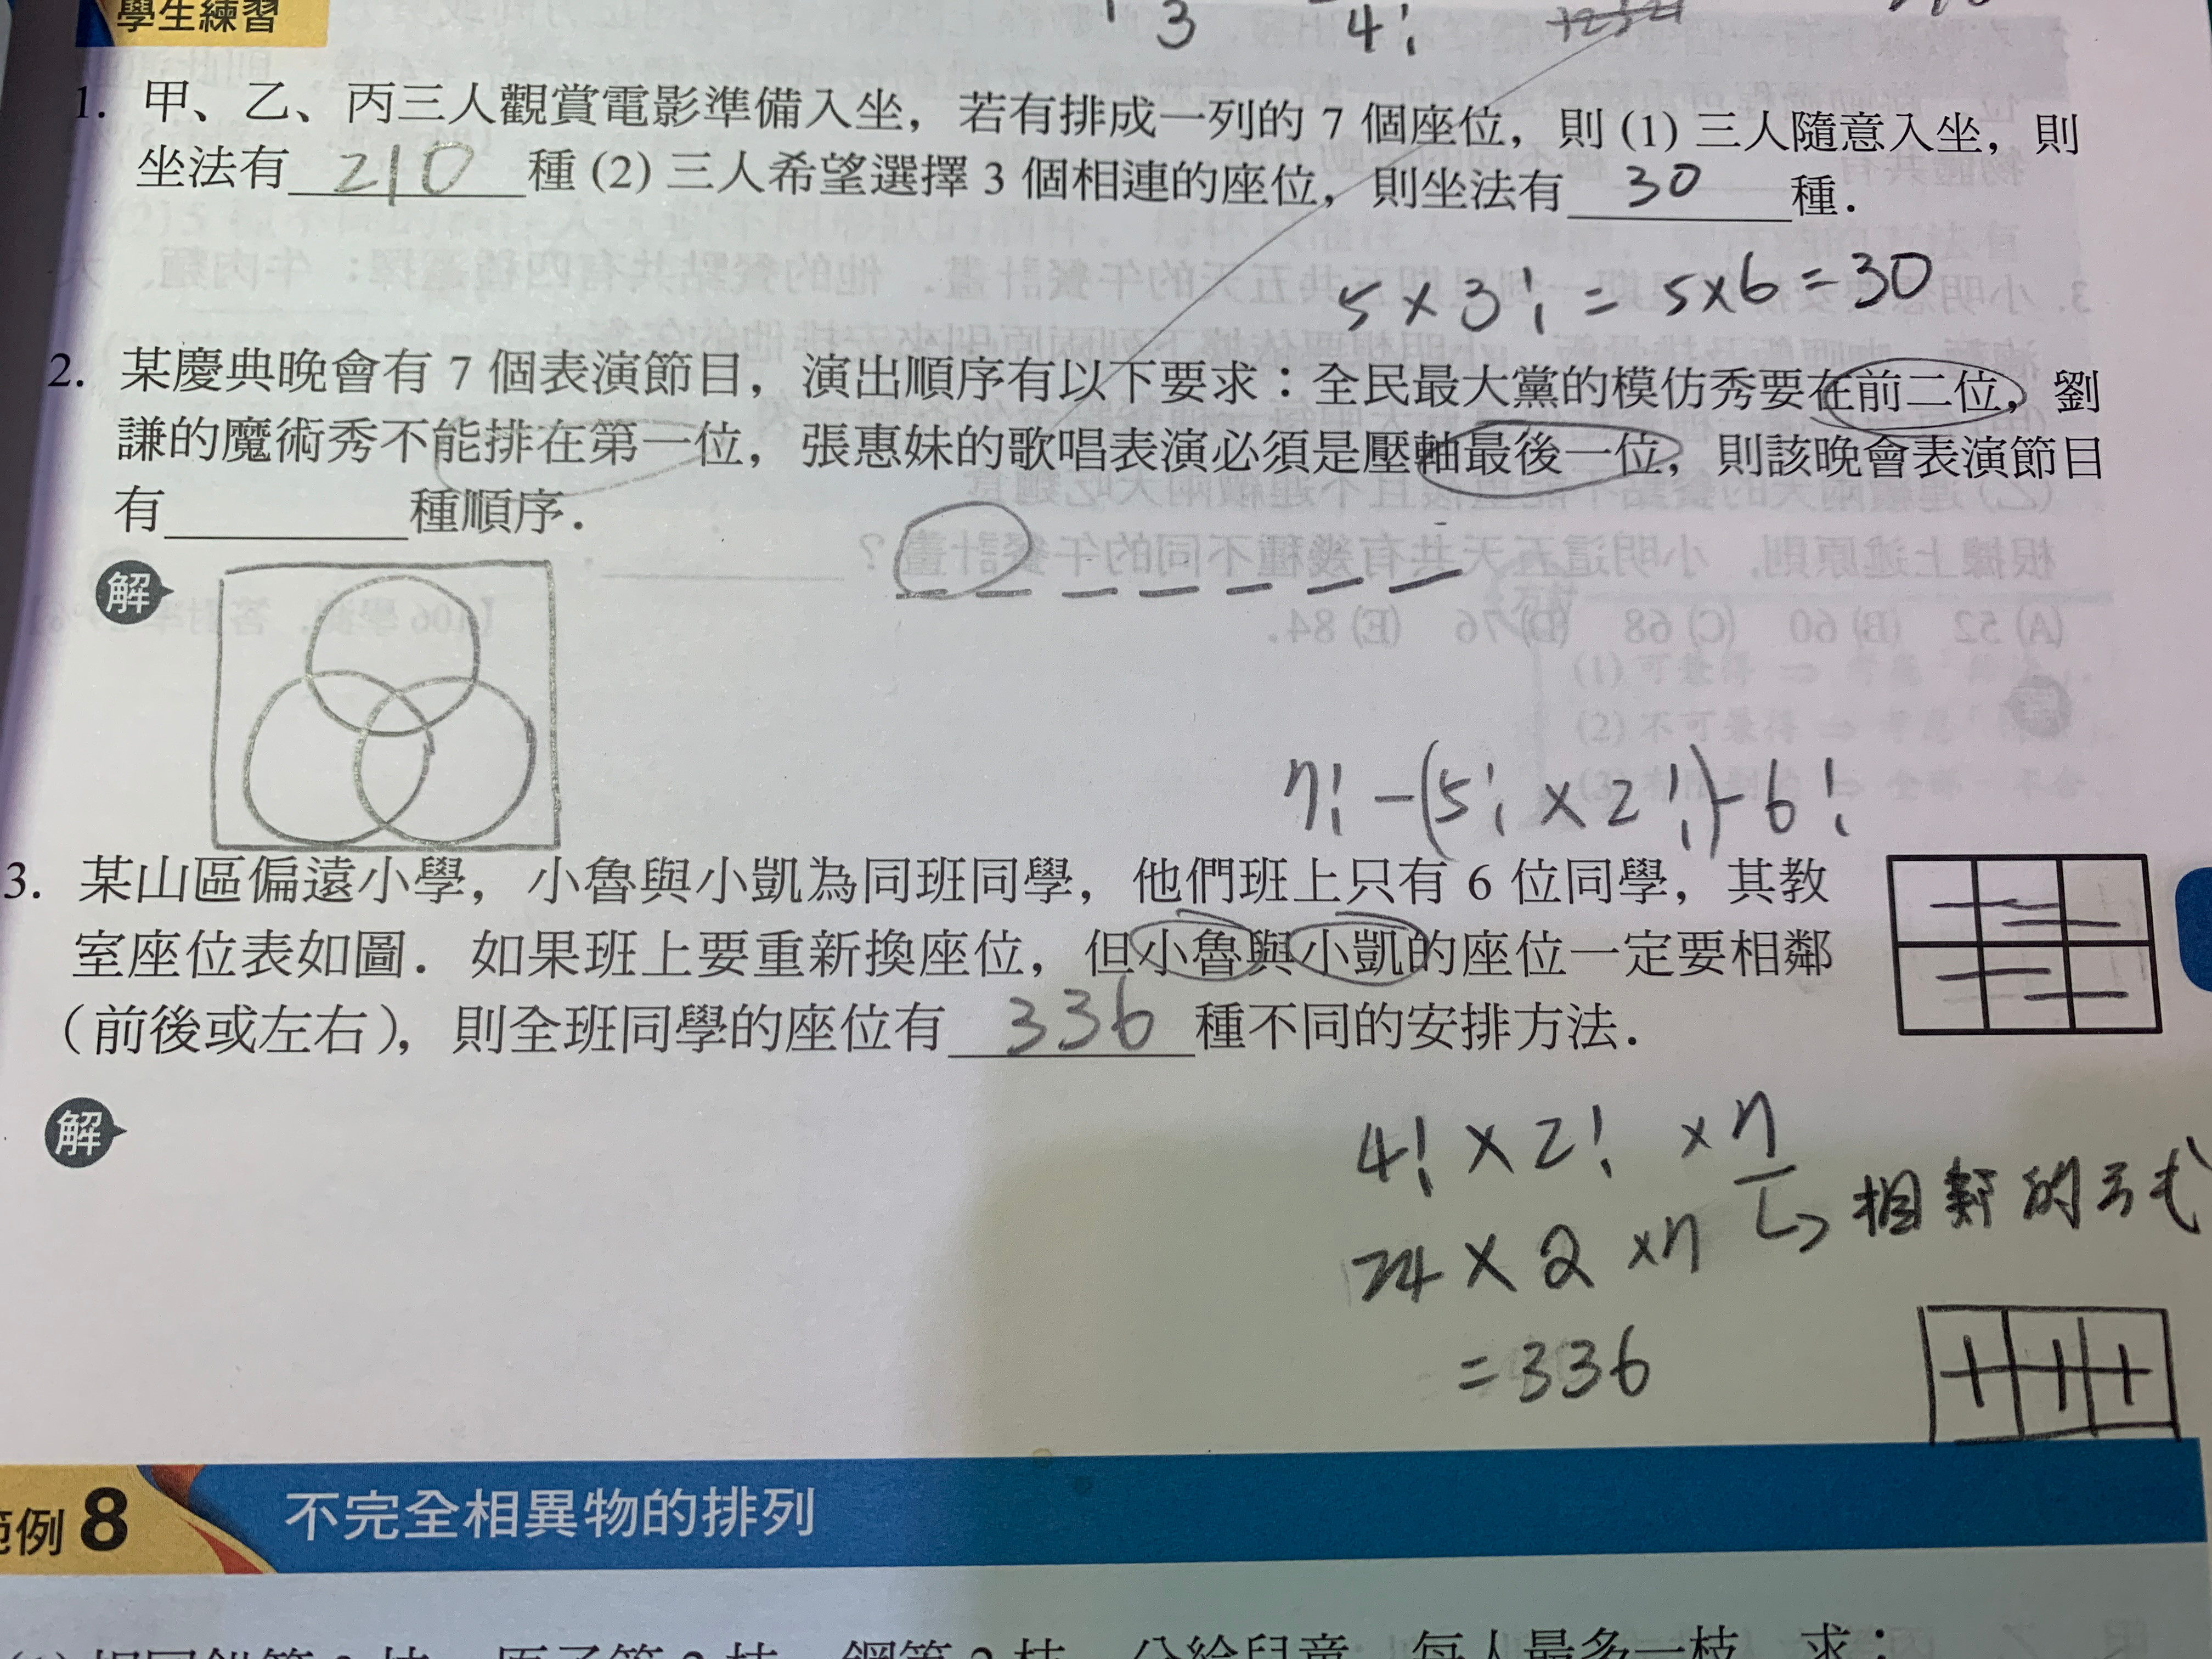 學生練習
3 4!
1. 甲、乙、丙三人觀賞電影準備入坐，若有排成一列的 7 個座位，則 (1) 三人隨意入坐，則
坐法有 210 種 (2) 三人希望選擇 3 個相連的座位，則坐法有 30 種．
5 × 3! = 5×6 = 30
2. 某慶典晚會有 7 個表演節目，演出順序有以下要求：全民最大黨的模仿秀要在前二位，劉
謙的魔術秀不能排在第一位，張惠妹的歌唱表演必須是壓軸最後一位，則該晚會表演節目
有 種順序．
解
7! - (5! × 2!) - 6!
3. 某山區偏遠小學，小魯與小凱為同班同學，他們班上只有 6 位同學，其教
室座位表如圖．如果班上要重新換座位，但小魯與小凱的座位一定要相鄰
（前後或左右），則全班同學的座位有 336 種不同的安排方法．
解
4! × 2! × 7
相鄰的方式
24 × 2 × 7
= 336
範例 8 不完全相異物的排列